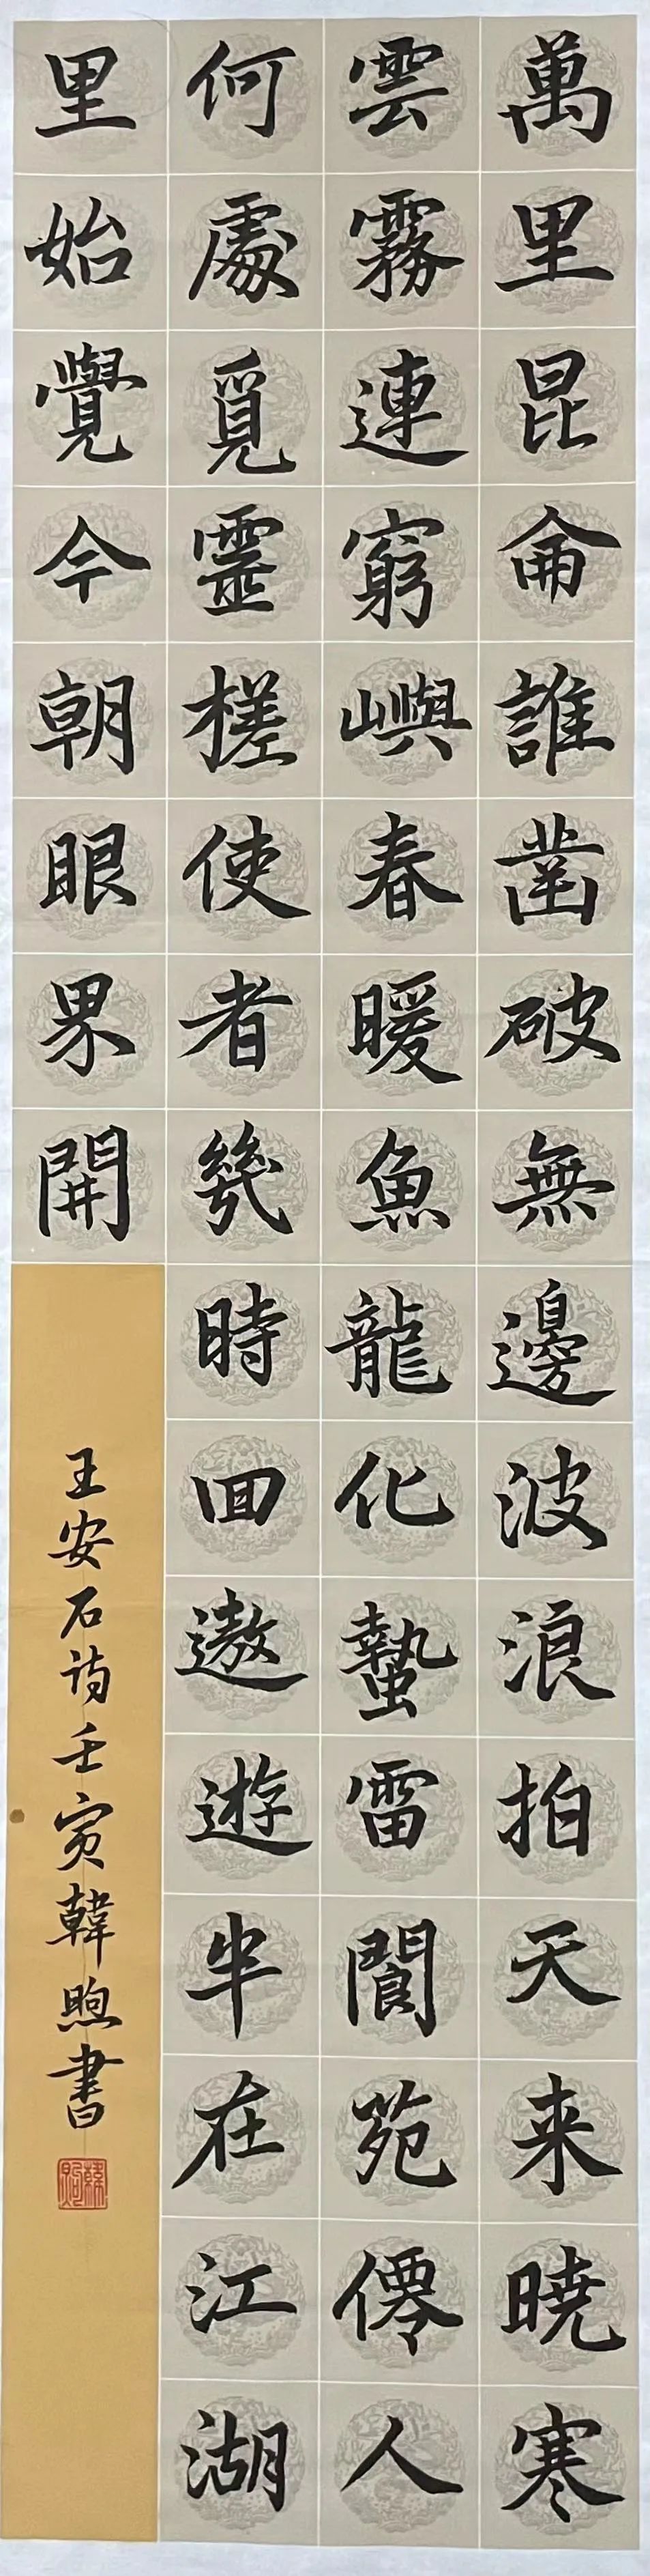 萬里昆侖誰凿破無邊波浪拍天来曉寒
雲霧連窮嶼春暖魚龍化蟄雷閬苑僊人
何處覓靈槎使者幾時回遨遊半在江湖
里始覺今朝眼界開
王安石詩壬寅韓煦書
韓煦